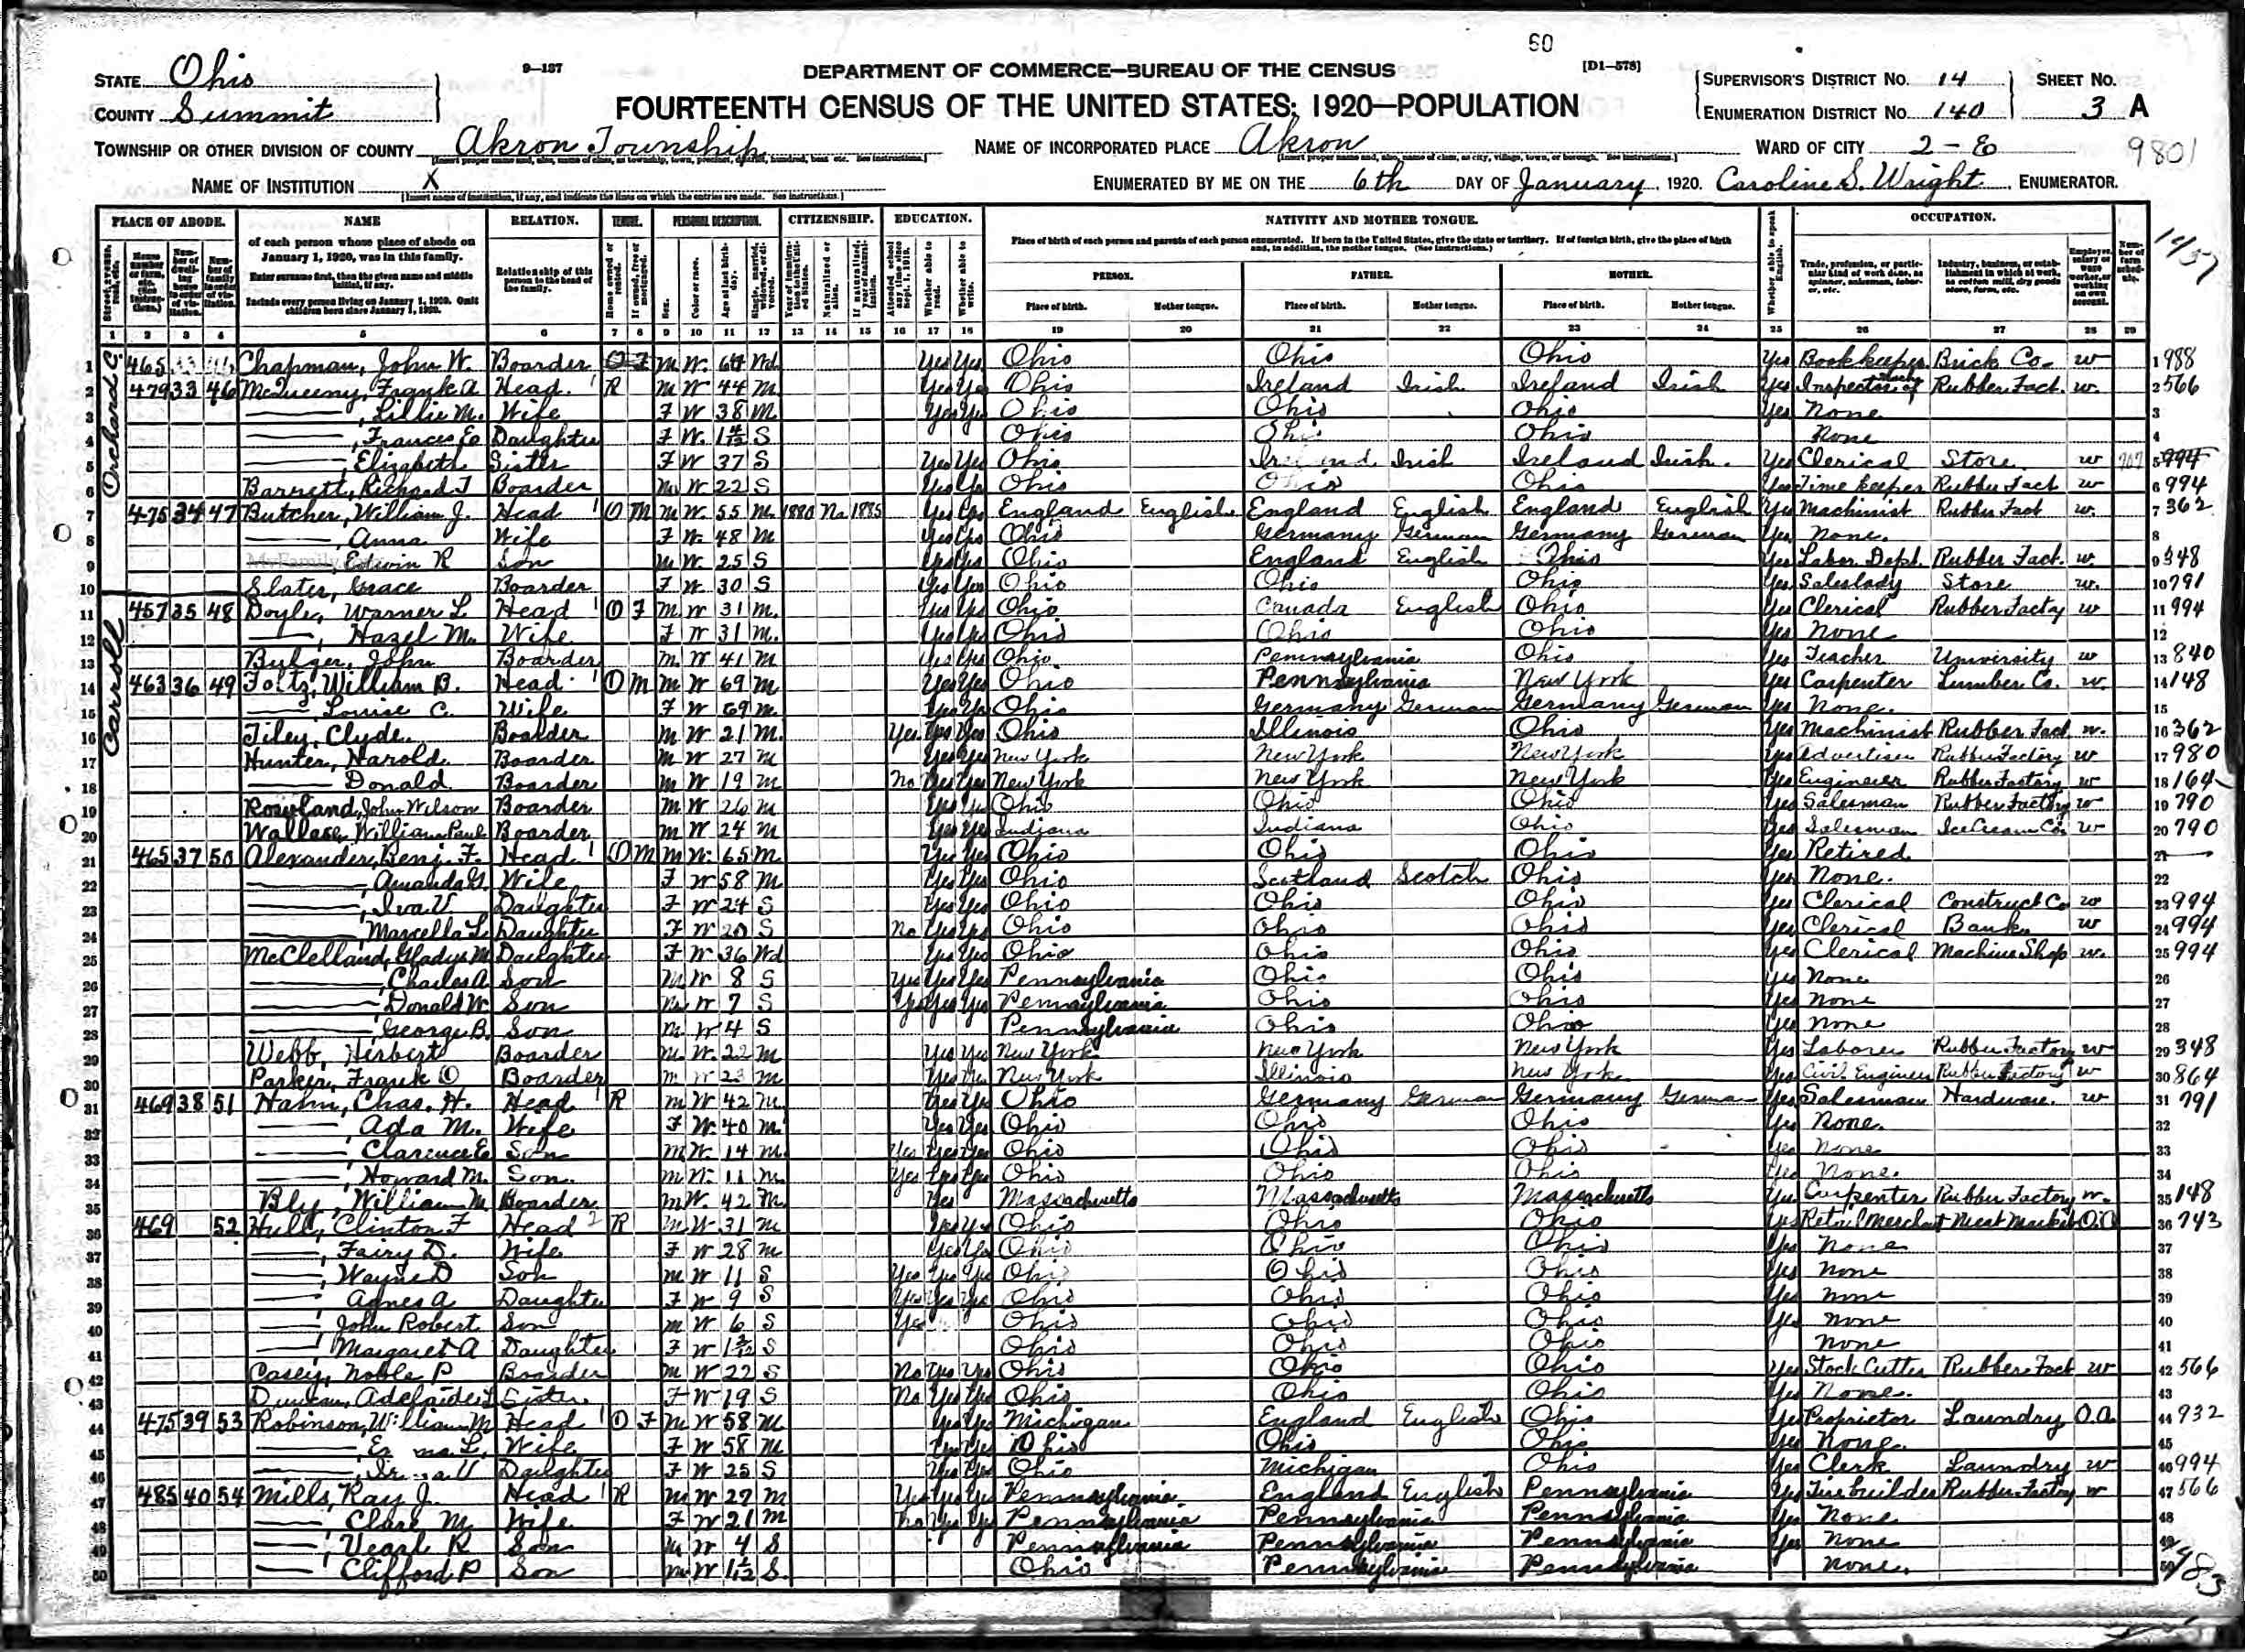 60
STATE Ohio
9-137
DEPARTMENT OF COMMERCE—BUREAU OF THE CENSUS
[D1-578]
SUPERVISOR'S DISTRICT No. 14 SHEET No.
COUNTY Summit
FOURTEENTH CENSUS OF THE UNITED STATES: 1920—POPULATION
ENUMERATION DISTRICT No. 140 3 A
TOWNSHIP OR OTHER DIVISION OF COUNTY Akron Township NAME OF INCORPORATED PLACE Akron WARD OF CITY 2-E 9801
NAME OF INSTITUTION X ENUMERATED BY ME ON THE 6th DAY OF January, 1920. Caroline S. Wright, ENUMERATOR.
PLACE OF ABODE. NAME RELATION. TENURE. PERSONAL DESCRIPTION. CITIZENSHIP. EDUCATION. NATIVITY AND MOTHER TONGUE. OCCUPATION.
of each person whose place of abode on January 1, 1920, was in this family.
Enter surname first, then the given name and middle initial, if any.
Include every person living on January 1, 1920. Omit children born since January 1, 1920.
Relationship of this person to the head of the family.
Place of birth of each person and parents of each person enumerated. If born in the United States, give the state or territory. If of foreign birth, give the place of birth and, in addition, the mother tongue. (See Instructions.)
PERSON. FATHER. MOTHER.
Place of birth. Mother tongue. Place of birth. Mother tongue. Place of birth. Mother tongue.
1 2 3 4 5 6 7 8 9 10 11 12 13 14 15 16 17 18 19 20 21 22 23 24 25 26 27 28 29
Orchard
Carroll
1 465 Chapman, John W. Boarder M W Wd Yes Yes Ohio Ohio Ohio Yes Bookkeeper Brick Co. W 1 988
2 479 33 46 McQueeny, Frank A Head R M W 44 M Yes Yes Ohio Ireland Irish Ireland Irish Yes Inspector Rubber Fact. W 2 566
3 —, Lillie M. Wife F W 38 M Yes Yes Ohio Ohio Ohio Yes None 3
4 —, Frances E Daughter F W S Ohio Ohio Ohio None 4
5 —, Elizabeth Sister F W 37 S Yes Yes Ohio Ireland Irish Ireland Irish Yes Clerical Store W 5 994
6 Barnett, Richard J Boarder M W 22 S Yes Yes Ohio Ohio Ohio Yes Time keeper Rubber Fact W 6 994
7 475 34 47 Butcher, William J. Head O M M W 55 M 1880 Na 1885 Yes Yes England English England English England English Yes Machinist Rubber Fact W 7 362
8 —, Anna Wife F W 48 M Yes Yes Ohio Germany German Germany German Yes None. 8
9 —, Edwin R Son M W 25 S Yes Yes Ohio England English Ohio Yes Labor Dept. Rubber Fact. W 9 348
10 Slater, Grace Boarder F W 30 S Yes Yes Ohio Ohio Ohio Yes Saleslady Store W 10 791
11 457 35 48 Doyle, Warner L Head O F M W 31 M Yes Yes Ohio Canada English Ohio Yes Clerical Rubber Facty W 11 994
12 —, Hazel M. Wife F W 31 M Yes Yes Ohio Ohio Ohio Yes None 12
13 Bulger, John Boarder M W 41 M Yes Yes Ohio Pennsylvania Ohio Yes Teacher University W 13 840
14 463 36 49 Foltz, William B. Head O M M W 69 M Yes Yes Ohio Pennsylvania New York Yes Carpenter Lumber Co. W 14 148
15 —, Louise C. Wife F W 69 M Yes Yes Ohio Germany German Germany German Yes None. 15
16 Tiley, Clyde Boarder M W 21 M Yes Yes Yes Ohio Illinois Ohio Yes Machinist Rubber Fact. W 16 362
17 Hunter, Harold Boarder M W 27 M Yes Yes New York New York New York Yes Advertiser Rubber Factory W 17 980
18 — Donald Boarder M W 19 M No Yes Yes New York New York New York Yes Engineer Rubber Factory W 18 164
19 Rowland, John Wilson Boarder M W 26 M Yes Yes Ohio Ohio Ohio Yes Salesman Rubber Factory W 19 790
20 Wallace, William Paul Boarder M W 24 M Yes Yes Indiana Indiana Ohio Yes Salesman Ice Cream Co. W 20 790
21 465 37 50 Alexander, Benj. F. Head O M M W 65 M Yes Yes Ohio Ohio Ohio Yes Retired 21
22 —, Amanda G. Wife F W 58 M Yes Yes Ohio Scotland Scotch Ohio Yes None. 22
23 —, Iva V. Daughter F W 24 S Yes Yes Ohio Ohio Ohio Yes Clerical Construct Co W 23 994
24 —, Marcella L. Daughter F W 20 S No Yes Yes Ohio Ohio Ohio Yes Clerical Bank W 24 994
25 McClelland, Gladys M Daughter F W 36 Wd Yes Yes Ohio Ohio Ohio Yes Clerical Machine Shop W 25 994
26 —, Charles A Son M W 8 S Yes Yes Yes Pennsylvania Ohio Ohio Yes None 26
27 —, Donald W. Son M W 7 S Yes Yes Yes Pennsylvania Ohio Ohio Yes None 27
28 —, George B. Son M W 4 S Pennsylvania Ohio Ohio Yes None 28
29 Webb, Herbert Boarder M W 22 M Yes Yes New York New York New York Yes Laborer Rubber Factory W 29 348
30 Parker, Frank O Boarder M W 23 M Yes Yes New York Illinois New York Yes Civil Engineer Rubber Factory W 30 864
31 469 38 51 Hahn, Chas. H. Head R M W 42 M Yes Yes Ohio Germany German Germany German Yes Salesman Hardware. W 31 791
32 —, Ada M. Wife F W 40 M Yes Yes Ohio Ohio Ohio Yes None. 32
33 —, Clarence E Son M W 14 M Yes Yes Yes Ohio Ohio Ohio Yes None 33
34 —, Howard M. Son M W 11 M Yes Yes Yes Ohio Ohio Ohio Yes None. 34
35 Bly, William M Boarder M W 42 M Yes Massachusetts Massachusetts Massachusetts Yes Carpenter Rubber Factory W 35 148
36 469 52 Hull, Clinton F Head R M W 31 M Yes Yes Ohio Ohio Ohio Yes Retail Merchant Meat Market O.A 36 743
37 —, Fairy D. Wife F W 28 M Yes Yes Ohio Ohio Ohio Yes None 37
38 —, Wayne D Son M W 11 S Yes Yes Yes Ohio Ohio Ohio Yes None 38
39 — Agnes A Daughter F W 9 S Yes Yes Yes Ohio Ohio Ohio Yes None 39
40 —, John Robert Son M W 6 S Yes Ohio Ohio Ohio Yes None 40
41 —, Margaret A Daughter F W S Ohio Ohio Ohio None 41
42 Casey, Noble P Boarder M W 22 S No Yes Yes Ohio Ohio Ohio Yes Stock Cutter Rubber Fact W 42 566
43 Duncan, Adelaide L Sister F W 19 S No Yes Yes Ohio Ohio Ohio Yes None. 43
44 475 39 53 Robinson, William M Head O F M W 58 M Yes Yes Michigan England English Ohio Yes Proprietor Laundry O.A. 44 932
45 —, L. Wife F W 58 M Yes Yes Ohio Ohio Ohio Yes None. 45
46 —, V Daughter F W 25 S Yes Yes Ohio Michigan Ohio Yes Clerk Laundry W 46 994
47 485 40 54 Mills, Ray J. Head R M W 27 M Yes Yes Yes Pennsylvania England English Pennsylvania Yes Tirebuilder Rubber Factory W 47 566
48 —, Clare M. Wife F W 21 M No Yes Yes Pennsylvania Pennsylvania Pennsylvania Yes None 48
49 —, Vearl R Son M W 4 S Pennsylvania Pennsylvania Pennsylvania Yes None 49
50 — Clifford P Son M W S Ohio Pennsylvania Pennsylvania None. 50